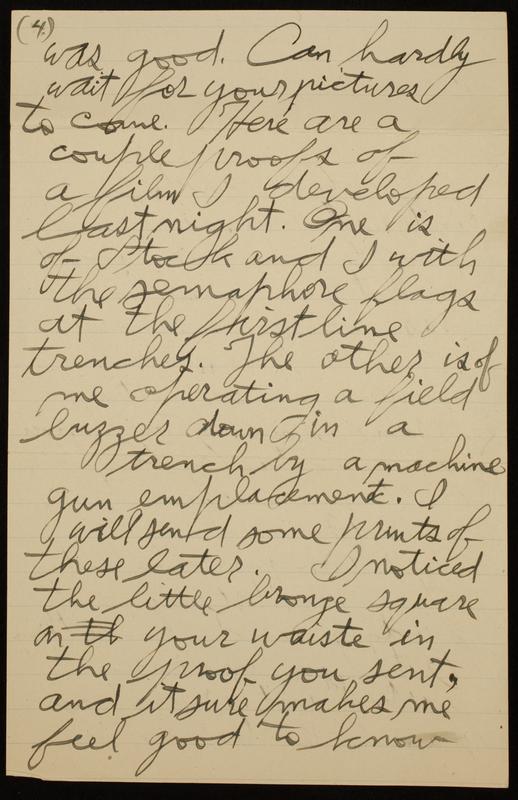 (4.)
was good. Can hardly
wait for your pictures
to come. Here are a
couple proofs of
a film I developed
last night. One is
of Stock and I with
the semaphore flags
at the first line
trenches. The other is of
me operating a field
buzzer down in a
trench by a machine
gun emplacement. I
will send some prints of
these later. I noticed
the little bronze square
on th your waiste in
the proof you sent,
and it sure makes me
feel good to know